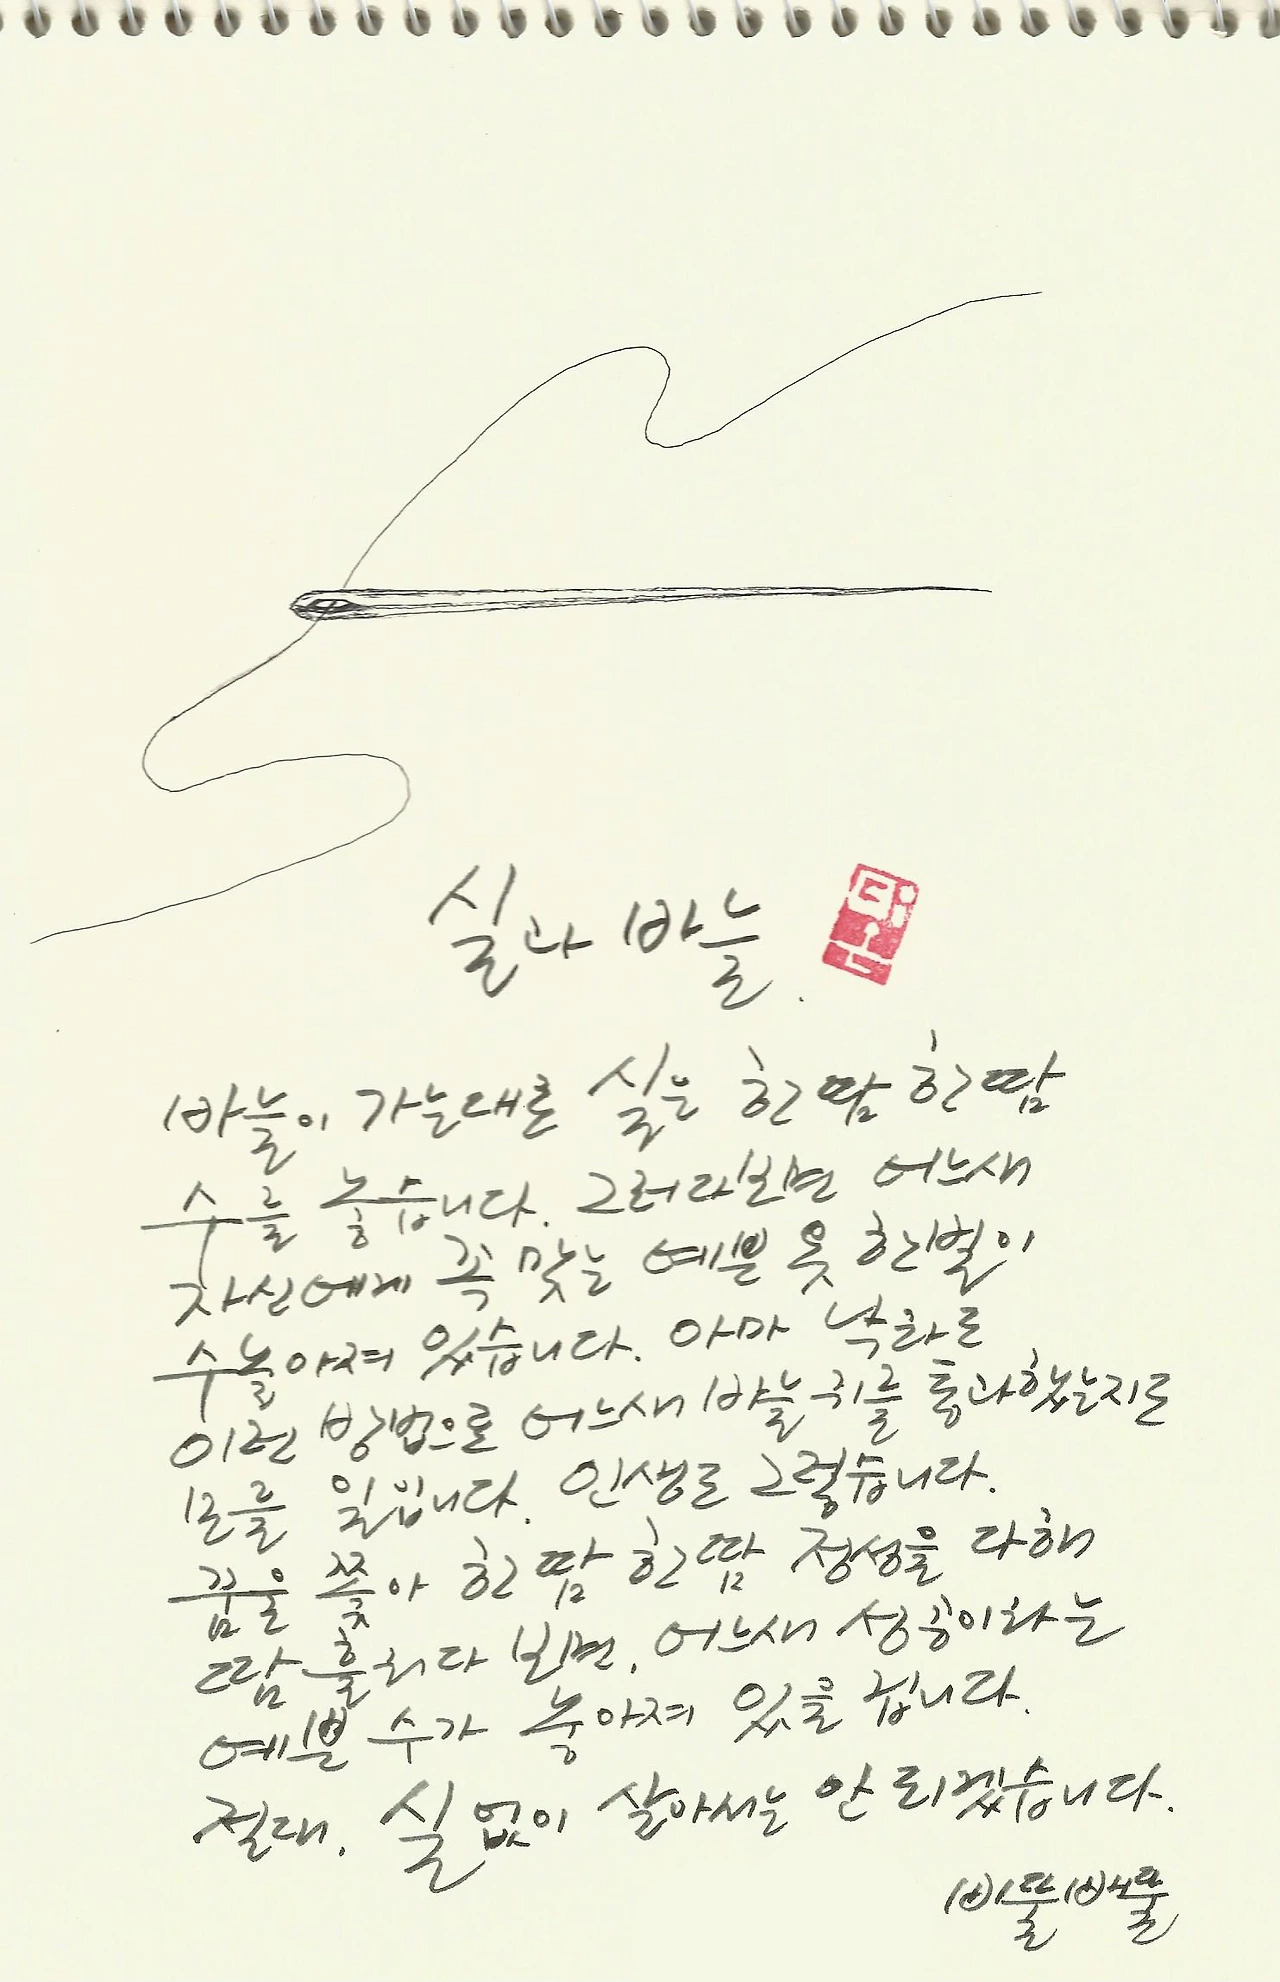 실과 바늘.
바늘이 가는대로 실은 한땀 한땀
수를 놓습니다. 그러다보면 어느새
자신에게 꼭 맞는 예쁜 옷 한벌이
수놓아져 있습니다. 아마 낙타도
이런 방법으로 어느새 바늘귀를 통과했는지도
모를 일입니다. 인생도 그렇습니다.
꿈을 쫓아 한땀 한땀 정성을 다해
땀 흘리다 보면, 어느새 성공이라는
예쁜 수가 놓아져 있을 겁니다.
절대, 실 없이 살아서는 안 되겠습니다.